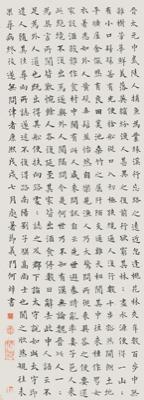 晉太元中武陵人捕魚為業緣溪行忘路之遠近忽逢桃花林夾岸數百步中無
雜樹芳草鮮美落英繽紛漁人甚異之復前行欲窮其林林盡水源便得一山山
有小口髣髴若有光便舍船從口入初極狹纔通人復行數十步豁然開朗土地
平曠屋舍儼然有良田美池桑竹之屬阡陌交通雞犬相聞其中往來種作男女
衣著悉如外人黃髮垂髫並怡然自樂見漁人乃大驚問所從來具答之便要還
家設酒殺雞作食村中聞有此人咸來問訊自云先世避秦時亂率妻子邑人來此
絕境不復出焉遂與外人間隔問今是何世乃不知有漢無論魏晉此人一一
為具言所聞皆歎惋餘人各復延至其家皆出酒食停數日辭去此中人語云不
足為外人道也既出得其船便扶向路處處誌之及郡下詣太守說如此太守即
遣人隨其往尋向所誌遂迷不復得路南陽劉子驥高尚士也聞之欣然規往未
果尋病終後遂無問津者康熙戊戌七月處暑節義門何焯書